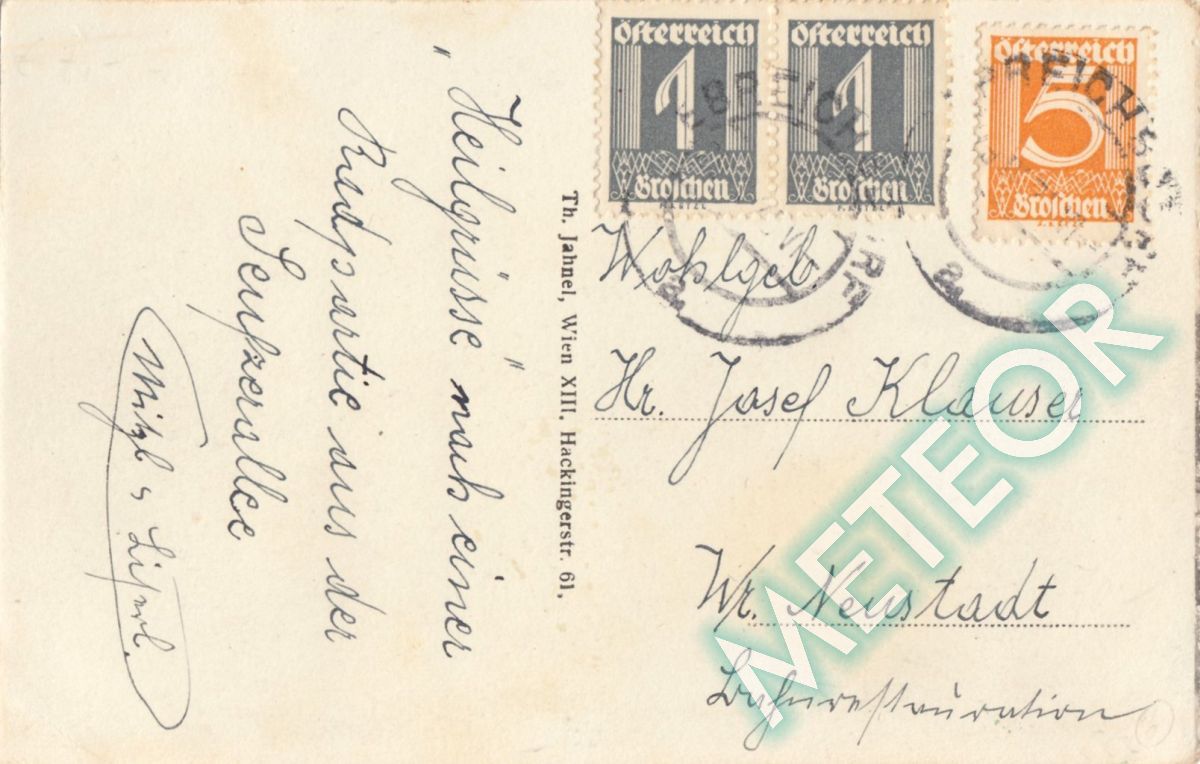 "Heilgrüsse" nach einer
Rudspartie aus der
Seufzerallee
Mitzl & Lisml.
Th. Jahnel, Wien XIII. Hackingerstr. 61.
Österreich
1
Groschen
Österreich
1
Groschen
Österreich
5
Groschen
EBREICHSDORF
EBREICHSDORF
Wohlgeb
Hr. Josef Klauser
Wr. Neustadt
Bahnrestauration
METEOR
6